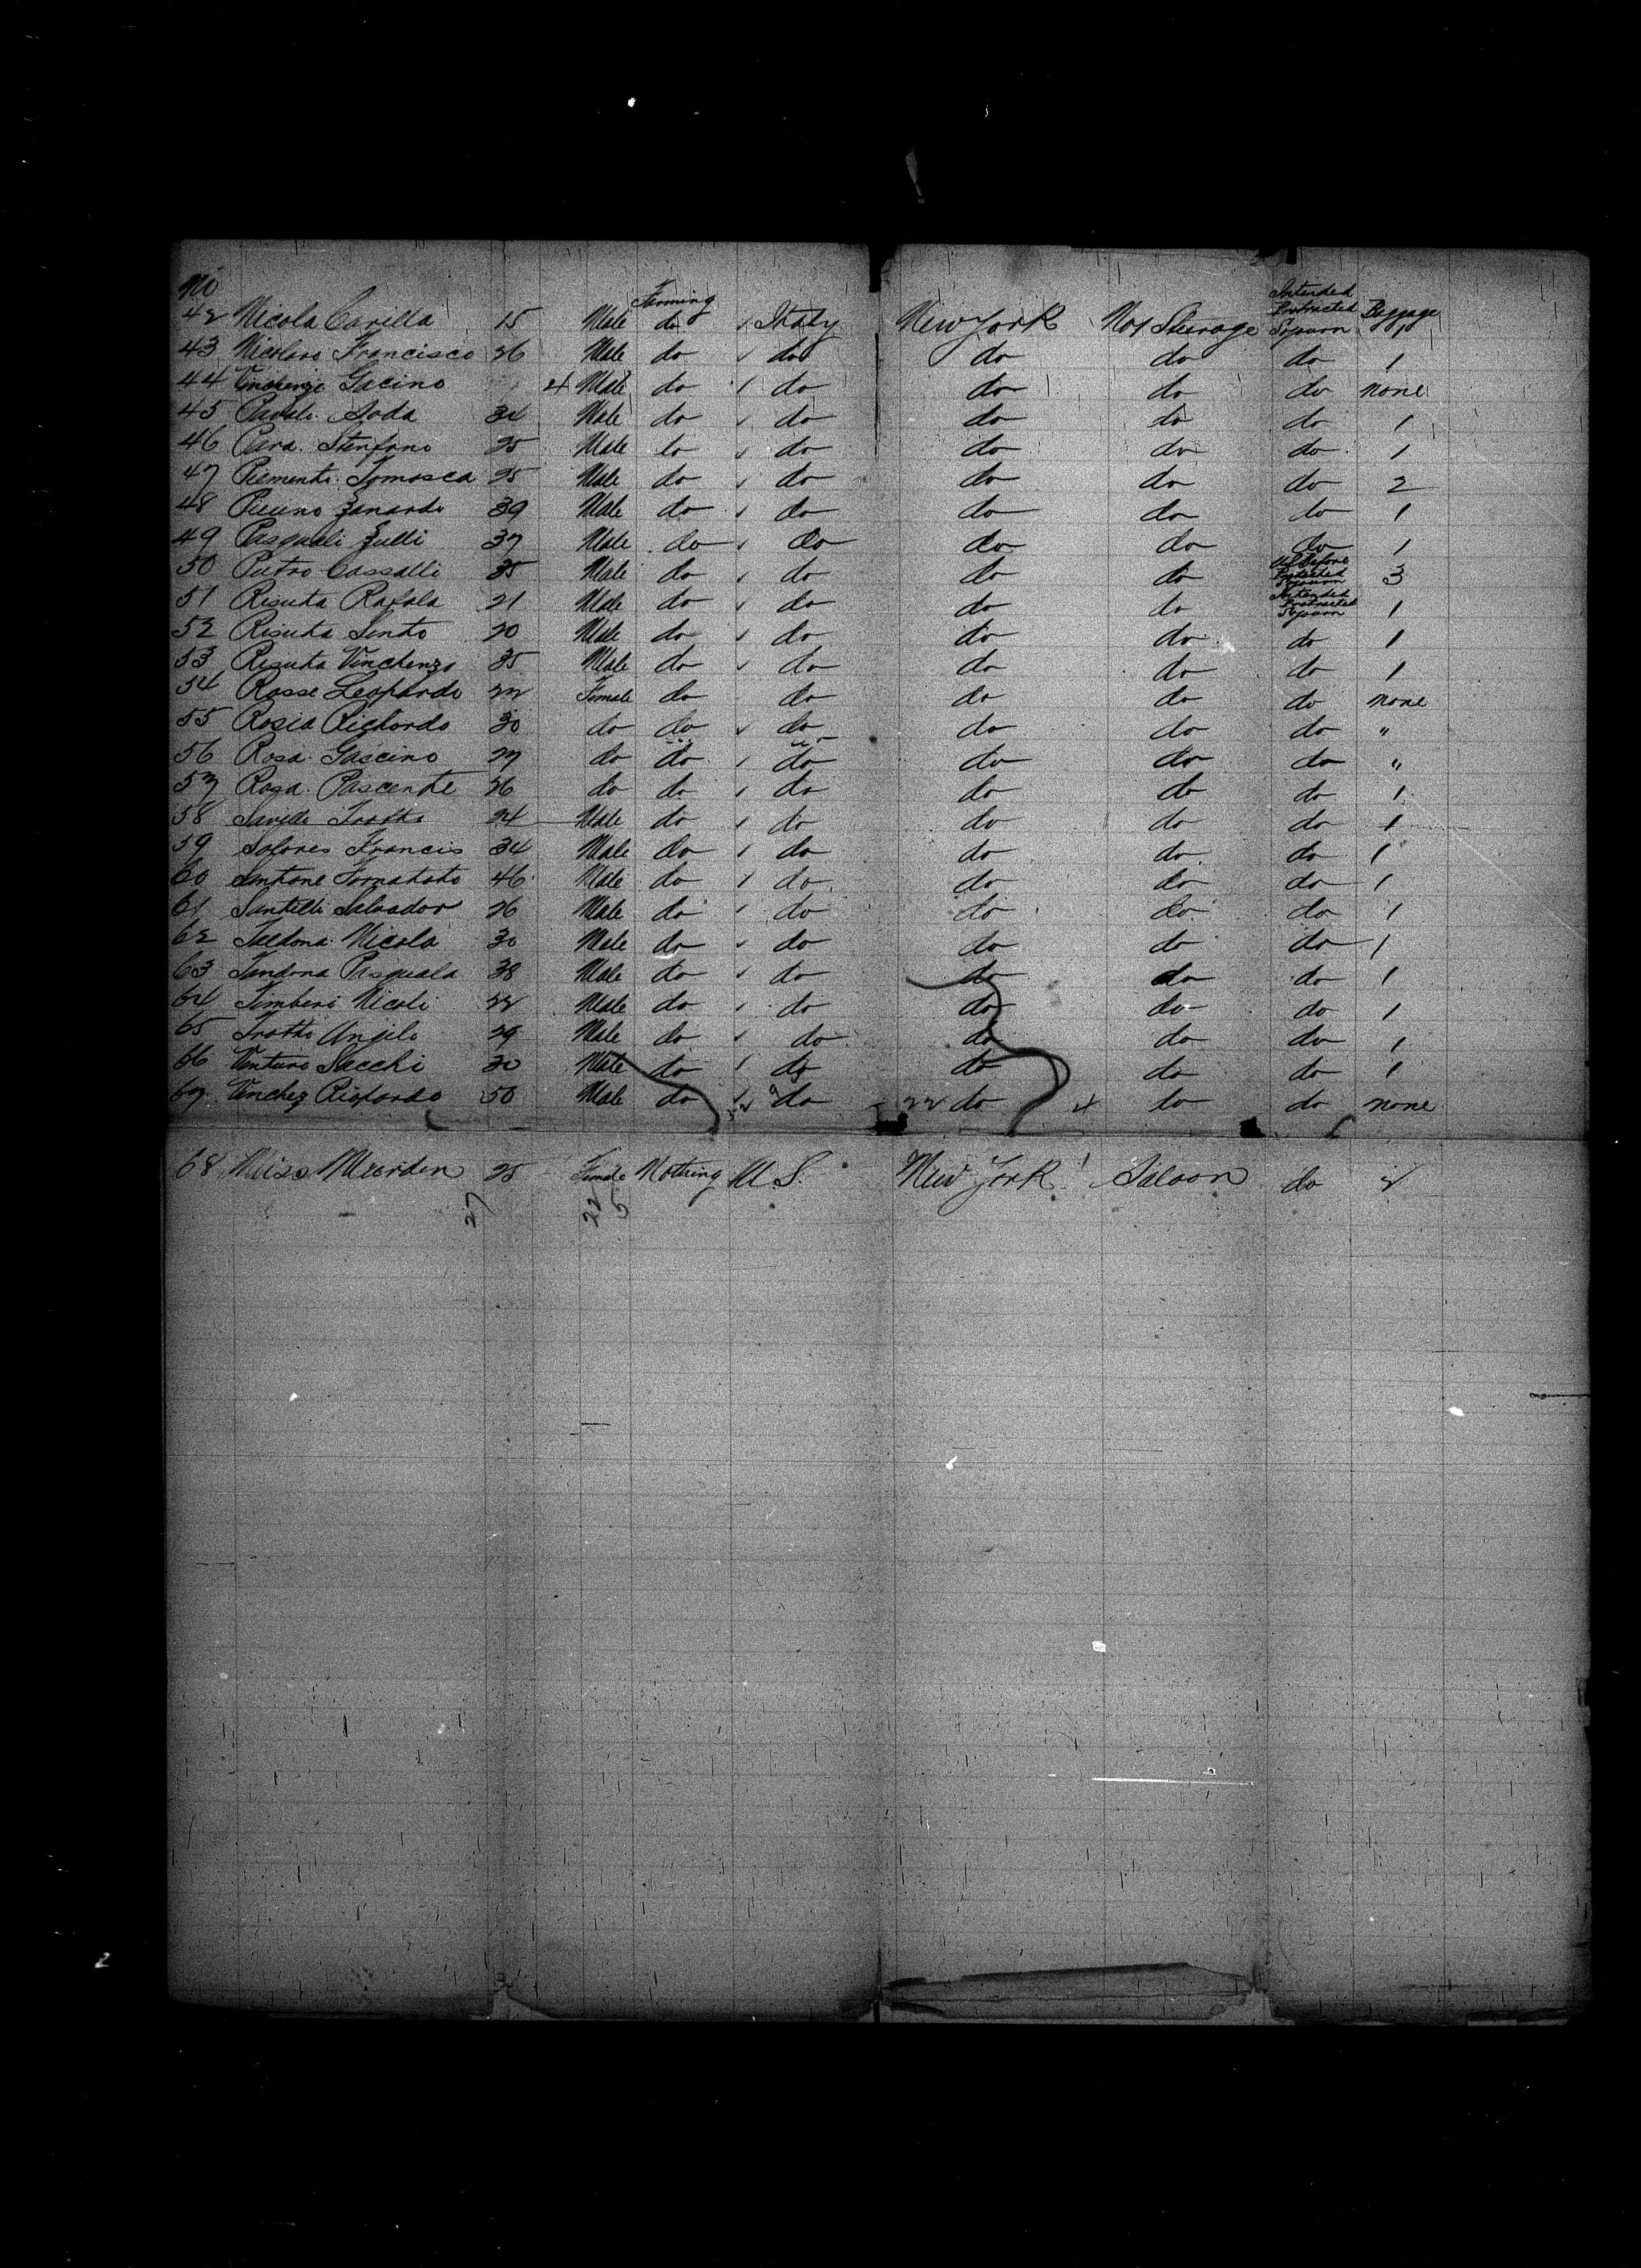 No Farming Intended Protracted Sojourn Baggage
42 Nicola Carilla 15 Male do 1 Italy New York No 1 Steerage 1
43 Nicolaro Francisco 26 Male do 1 do do do do 1
44 Vinchenzo Gacino 4 Male do 1 do do do do none
45 Soda 34 Male do 1 do do do do 1
46 Stenfano 25 Male do 1 do do do do 1
47 Piementi Tomasca 25 Male do 1 do do do do 2
48 Zanardo 39 Male do 1 do do do do 1
49 Pasquali Zulli 37 Male do 1 do do do do 1
50 Pietro Cassalli 35 Male do 1 do do do Before Protracted Sojourn 3
51 Risuta Rafala 21 Male do 1 do do do Intended Protracted Sojourn 1
52 Risuta Sento 20 Male do 1 do do do do 1
53 Risuta Vinchenzo 35 Male do 1 do do do do 1
54 Rosse Leopardo 22 Female do do do do do none
55 Rosia Richardo 30 do do 1 do do do do "
56 Rosa Gascino 27 do do 1 do do do do "
57 Rosa Pascente 26 do do 1 do do do do 1
58 Trotta 24 Male do 1 do do do do 1
59 Solores Francis 34 Male do 1 do do do do 1
60 Santone Tornatoto 46 Male do 1 do do do do 1
61 Santelli Salvador 26 Male do 1 do do do do 1
62 Taldona Nicola 30 Male do 1 do do do do 1
63 Tandona Pasquala 38 Male do 1 do do do do 1
64 Timberi Nicoli 22 Male do 1 do do do do 1
65 Trotto Angilo 29 Male do 1 do do do do 1
66 Venturo Sacchi 30 Male do 1 do do do do 1
67 Vinchez Richardo 50 Male do 1 do 22 do 4 do do none
68 Miss Meriden 25 Female Nothing U.S. New York 1 Saloon do 2
27 22 5